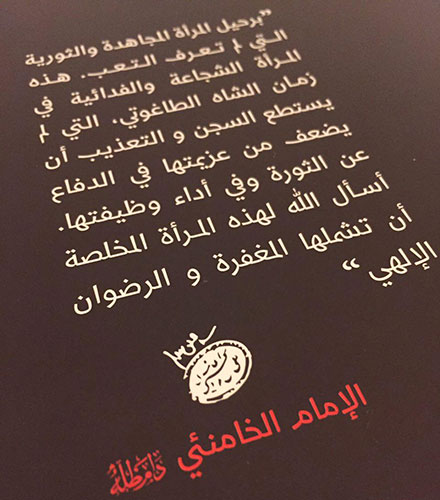 "برحيل المرأة المجاهدة والثورية
التي لم تعرف التعب. هذه
المرأة الشجاعة والفدائية في
زمان الشاه الطاغوتي، التي لم
يستطع السجن و التعذيب أن
يضعف من عزيمتها في الدفاع
عن الثورة وفي أداء وظيفتها.
أسأل الله لهذه المرأة المخلصة
أن تشملها المغفرة و الرضوان
الإلهي"
الإمام الخامنئي دام ظله